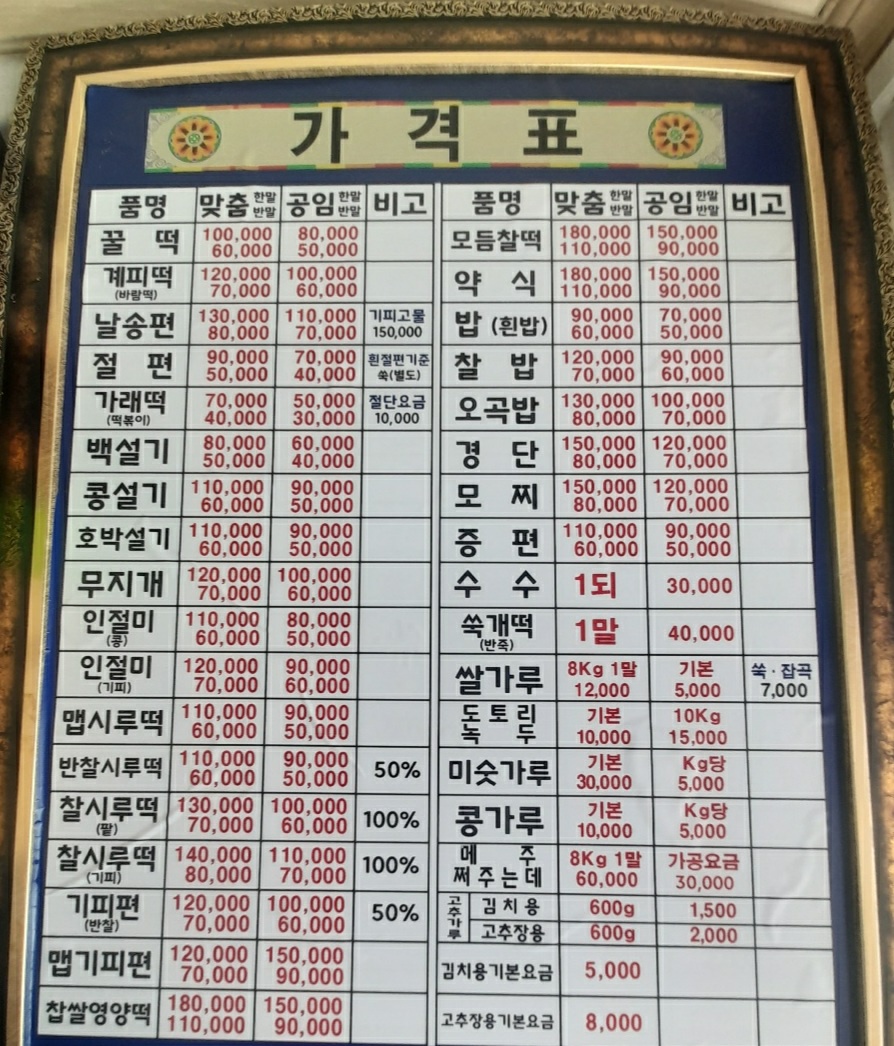 가 격 표
품명 맞춤 한말 반말 공임 한말 반말 비고
꿀 떡 100,000 60,000 80,000 50,000
계피떡 (바람떡) 120,000 70,000 100,000 60,000
날송편 130,000 80,000 110,000 70,000 기피고물 150,000
절 편 90,000 50,000 70,000 40,000 흰절편기준 쑥(별도)
가래떡 (떡볶이) 70,000 40,000 50,000 30,000 절단요금 10,000
백설기 80,000 50,000 60,000 40,000
콩설기 110,000 60,000 90,000 50,000
호박설기 110,000 60,000 90,000 50,000
무지개 120,000 70,000 100,000 60,000
인절미 (콩) 110,000 60,000 80,000 50,000
인절미 (기피) 120,000 70,000 90,000 60,000
맵시루떡 110,000 60,000 90,000 50,000
반찰시루떡 110,000 60,000 90,000 50,000 50%
찰시루떡 (팥) 130,000 70,000 100,000 60,000 100%
찰시루떡 (기피) 140,000 80,000 110,000 70,000 100%
기피편 (반찰) 120,000 70,000 100,000 60,000 50%
맵기피편 120,000 70,000 150,000 90,000
찹쌀영양떡 180,000 110,000 150,000 90,000
품명 맞춤 한말 반말 공임 한말 반말 비고
모듬찰떡 180,000 110,000 150,000 90,000
약 식 180,000 110,000 150,000 90,000
밥 (흰밥) 90,000 60,000 70,000 50,000
찰 밥 120,000 70,000 90,000 60,000
오곡밥 130,000 80,000 100,000 70,000
경 단 150,000 80,000 120,000 70,000
모 찌 150,000 80,000 120,000 70,000
증 편 110,000 60,000 90,000 50,000
수 수 1되 30,000
쑥개떡 (반죽) 1말 40,000
쌀가루 8Kg 1말 12,000 기본 5,000 쑥·잡곡 7,000
도토리 녹 두 기본 10,000 10Kg 15,000
미숫가루 기본 30,000 Kg당 5,000
콩가루 기본 10,000 Kg당 5,000
메 주 쩌주는데 8Kg 1말 60,000 가공요금 30,000
고추가루 김치용 600g 1,500
고추장용 600g 2,000
김치용기본요금 5,000
고추장용기본요금 8,000